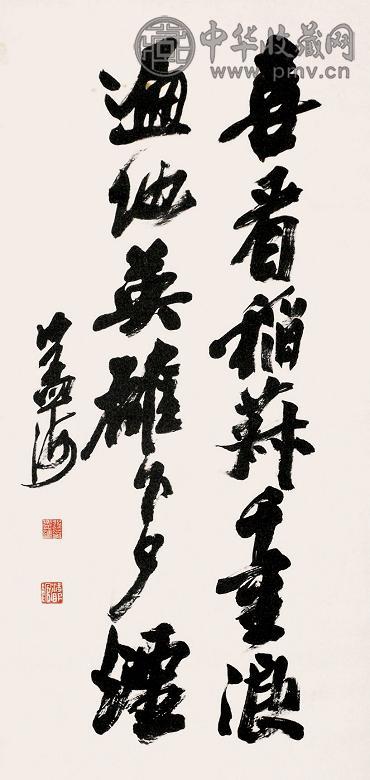 中华收藏网
www.pmv.cn
喜看稻菽千重浪
遍地英雄下夕煙
沙孟海